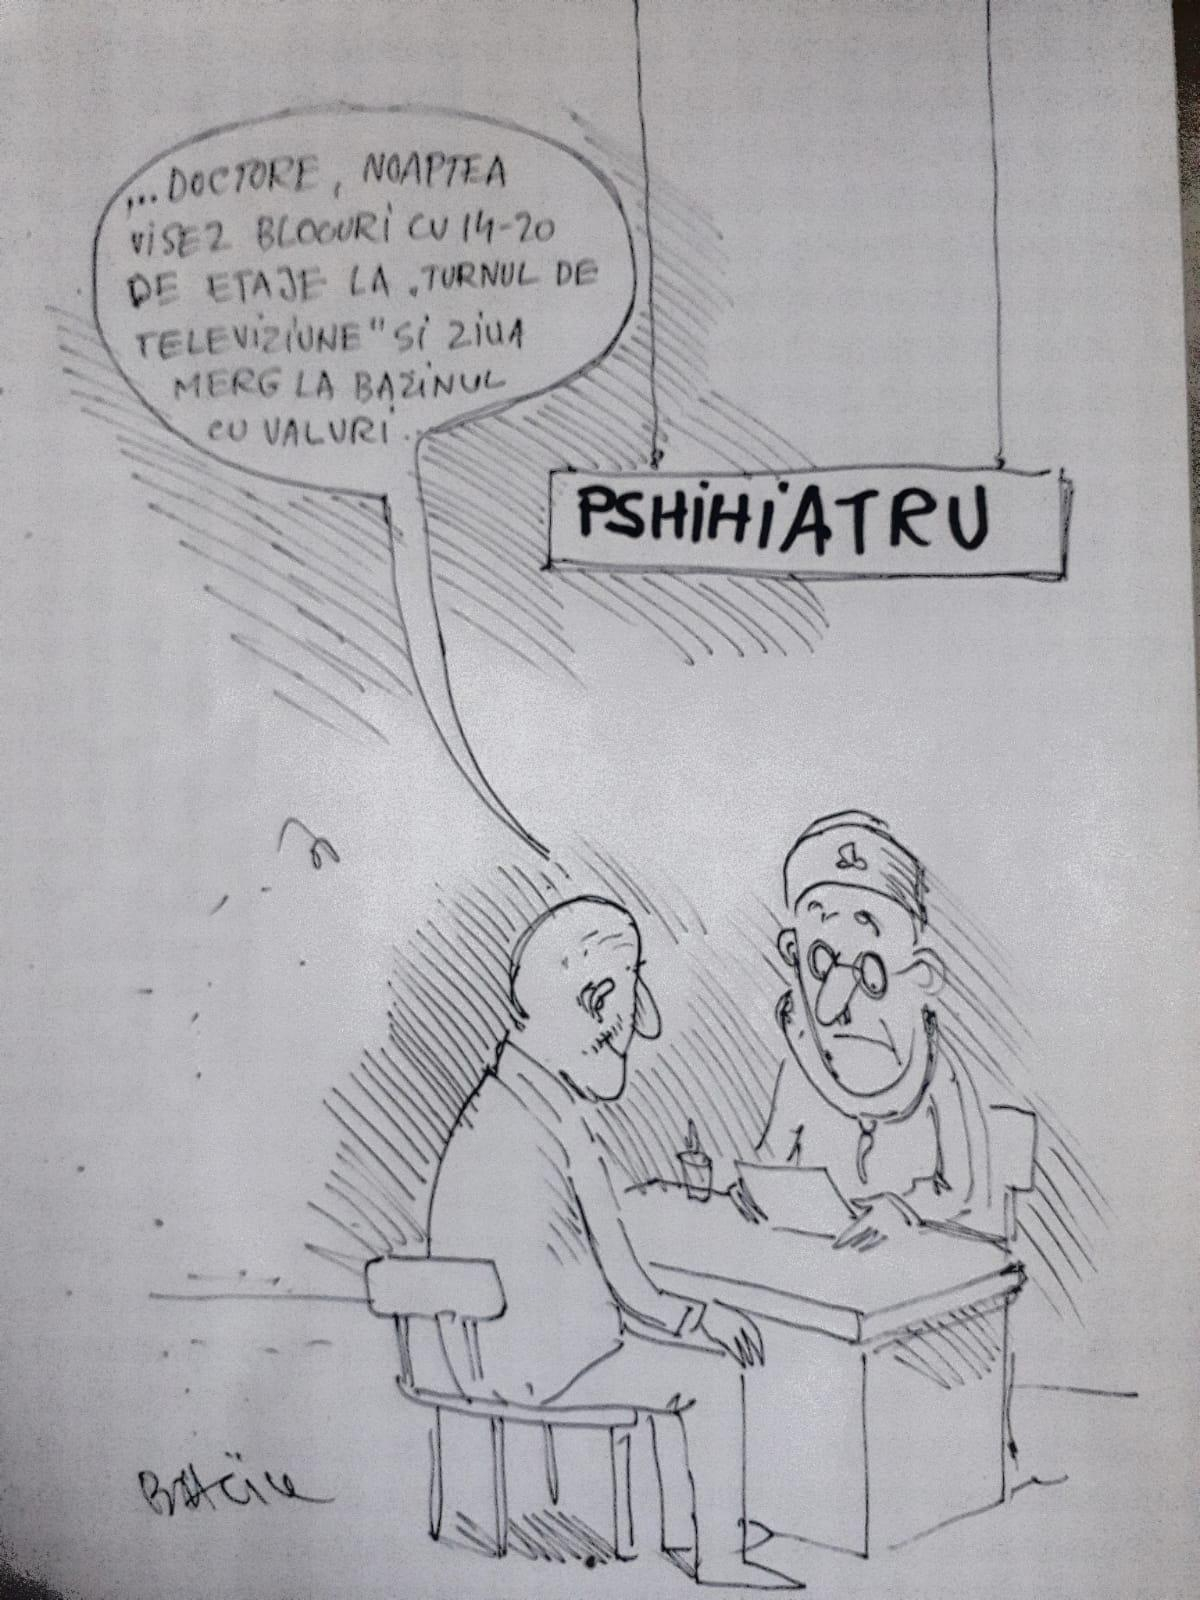 ...DOCTORE, NOAPTEA
VISEZ BLOCURI CU 14-20
DE ETAJE LA „TURNUL DE
TELEVIZIUNE" SI ZIUA
MERG LA BAZINUL
CU VALURI...
PSHIHIATRU